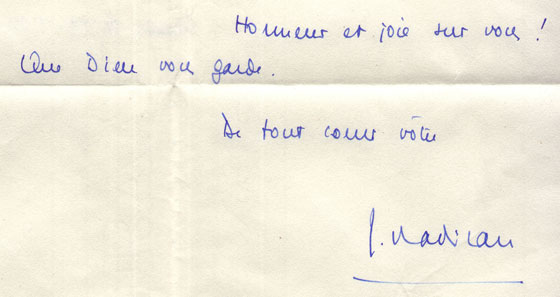 Honneur et joie sur vous !
Que Dieu vous garde.
De tout cœur vôtre
J. Madiran